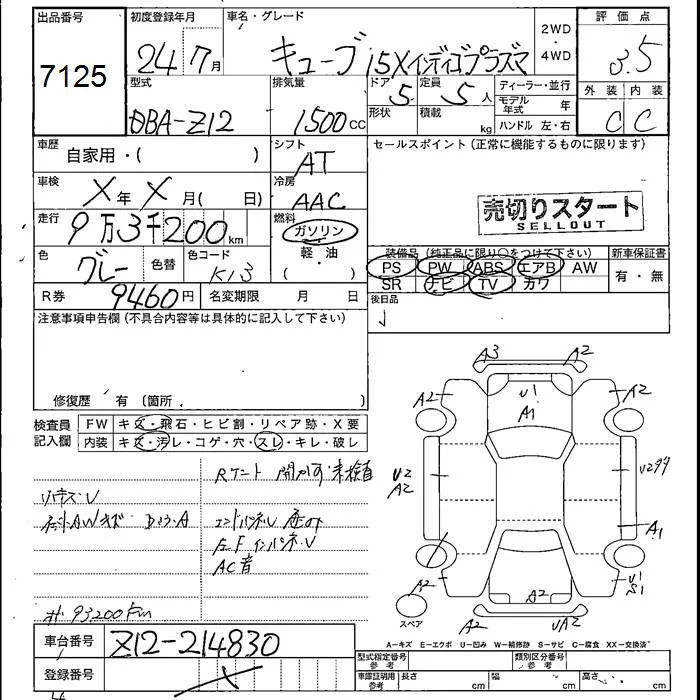 出品番号 初度登録年月 車名・グレード 2WD ・ 4WD 評価点
7125 24 7月 キューブ 15Xインディゴプラズマ 3.5
型式 排気量 ドア 5 定員 5人 ディーラー・並行 外装 内装
DBA-Z12 1500cc 形状 積載 kg モデル年式 年 C C
ハンドル 左・右
車歴 自家用・( ) シフト AT セールスポイント (正常に機能するものに限ります)
車検 X年 X月( 日) 冷房 AAC
売切りスタート
SELLOUT
走行 9万3千200km 燃料 ガソリン
軽・油
( )
装備品 (純正品に限り○をつけて下さい) 新車保証書
色 グレー 色替 色コード K13 PS PW ABS エアB AW 有・無
SR ナビ TV カワ
R券 9460円 名変期限 月 日 後日品
注意事項申告欄 (不具合内容等は具体的に記入して下さい)
修復歴 有 (箇所 )
検査員記入欄 FW キズ・飛石・ヒビ割・リペア跡・X要
内装 キズ・汚レ・コゲ・穴・スレ・キレ・破レ
A3 A2
A2 U1 A1 A2
U2 A2
A1
A2 A2 U1 S1
A2 UA2
AC音
93200km
スペア
A=キズ E=エクボ U=凹み W=補修跡 S=サビ C=腐食 XX=交換済
車台番号 Z12-214830
型式指定番号 参考 類別区分番号 参考
登録番号
車庫証明用 参考 長さ cm 幅 cm 高さ cm